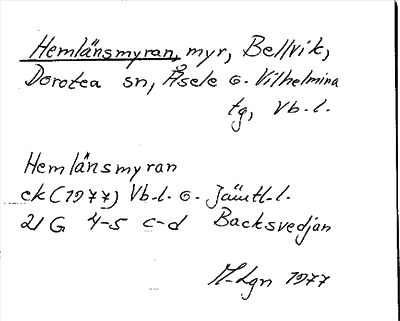 Hemlänsmyran, myr, Bellvik,
Dorotea sn, Åsele o. Vilhelmina
tg, Vb.l.
Hemlänsmyran
ek (1977) Vb.l. o. Jämtl.l.
21 G 4-5 c-d Backsvedjan
M-Lgn 1977